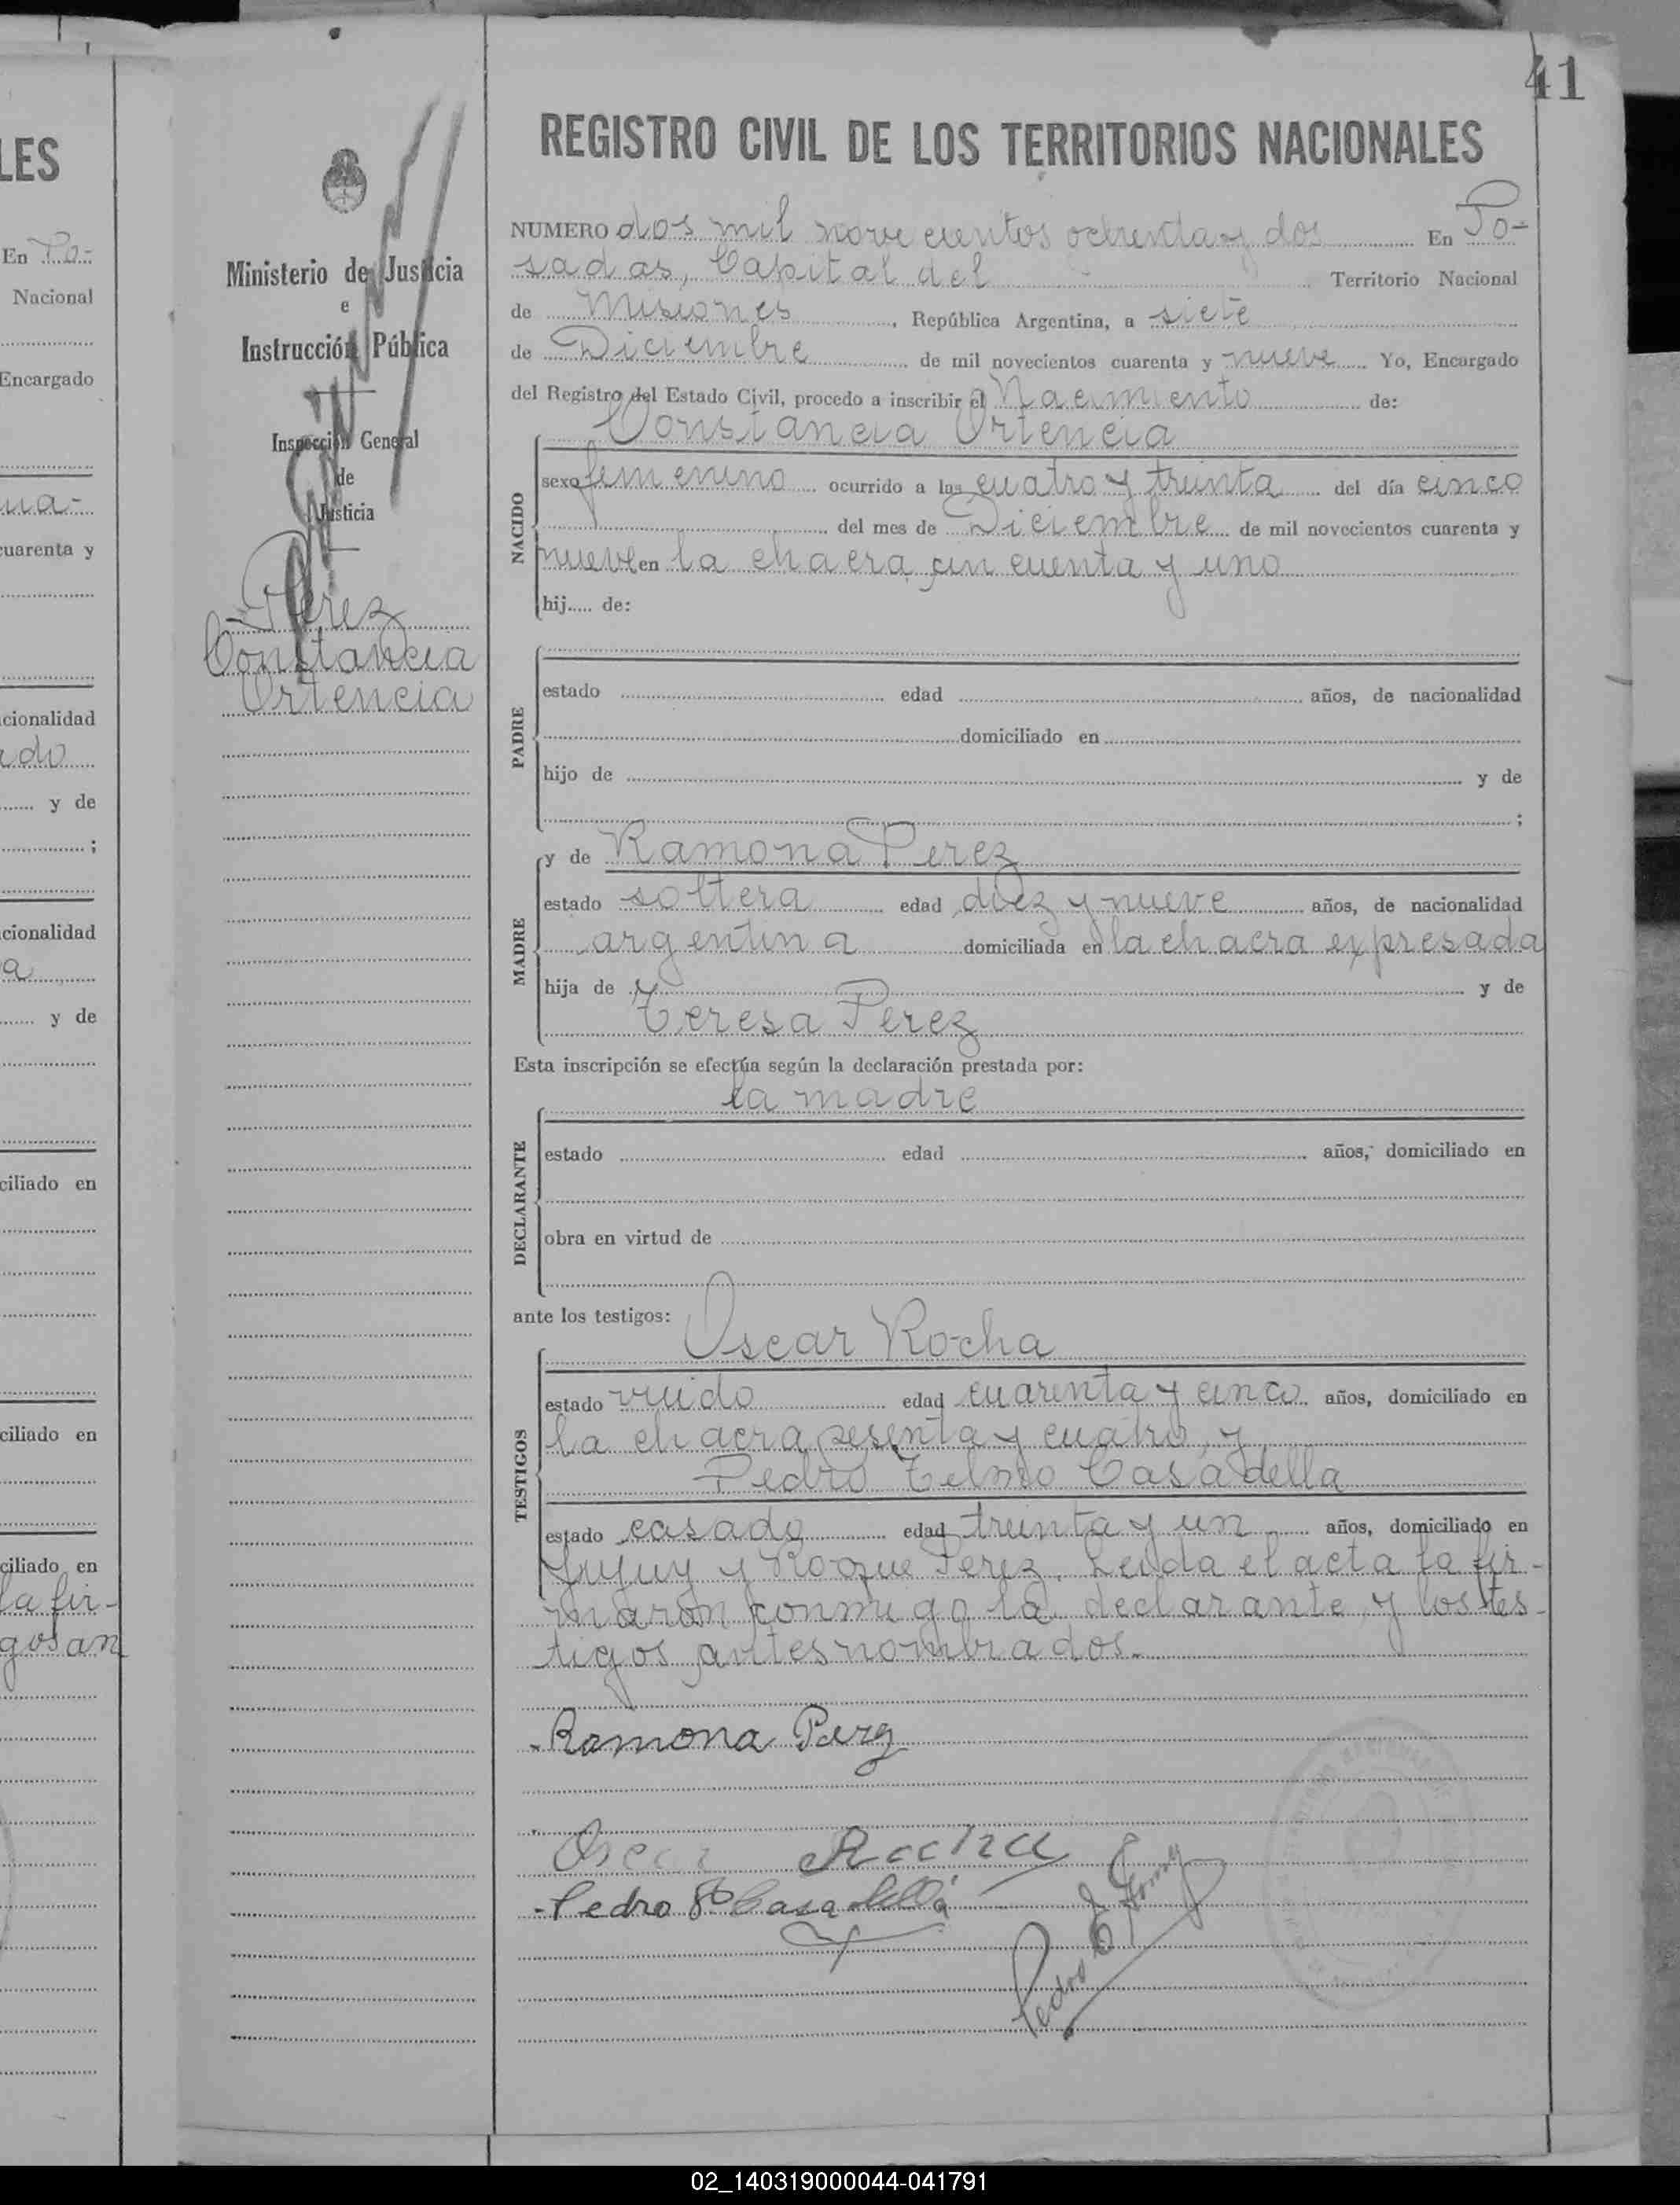 41
LES
En Po-
Nacional
Encargado
una-
cuarenta y
cionalidad
ado
y de
;
cionalidad
a
y de
ciliado en
ciliado en
ciliado en
la fir-
gos an
Ministerio de Justicia
e
Instrucción Pública
Inspección General
de
Justicia
Perez
Constancia
Ortencia
REGISTRO CIVIL DE LOS TERRITORIOS NACIONALES
NUMERO dos mil nove cientos ochenta y dos En Po-
sadas, Capital del Territorio Nacional
de Misiones, República Argentina, a siete
de Diciembre de mil novecientos cuarenta y nueve Yo, Encargado
del Registro del Estado Civil, procedo a inscribir el Nacimiento de:
Constancia Ortencia
NACIDO
sexo femenino ocurrido a las cuatro y treinta del día cinco
del mes de Diciembre de mil novecientos cuarenta y
nueve en la chacra cin cuenta y uno
hij..... de:
PADRE
estado edad años, de nacionalidad
domiciliado en
hijo de y de
;
MADRE
y de Ramona Perez
estado soltera edad diez y nueve años, de nacionalidad
argentina domiciliada en la chacra expresada
hija de y de
Teresa Perez
Esta inscripción se efectúa según la declaración prestada por:
la madre
DECLARANTE
estado edad años, domiciliado en
obra en virtud de
ante los testigos:
Oscar Rocha
TESTIGOS
estado viudo edad cuarenta y cinco años, domiciliado en
la chacra sesenta y cuatro, y
Pedro Telmo Casadella
estado casado edad treinta y un años, domiciliado en
Jujuy y Roque Perez. Leida el acta la fir-
maron conmigo la declarante, y los tes-
tigos antes nombrados.
Ramona Perez
Oscar Rocha
Pedro Casadellá
Pedro
02_140319000044-041791